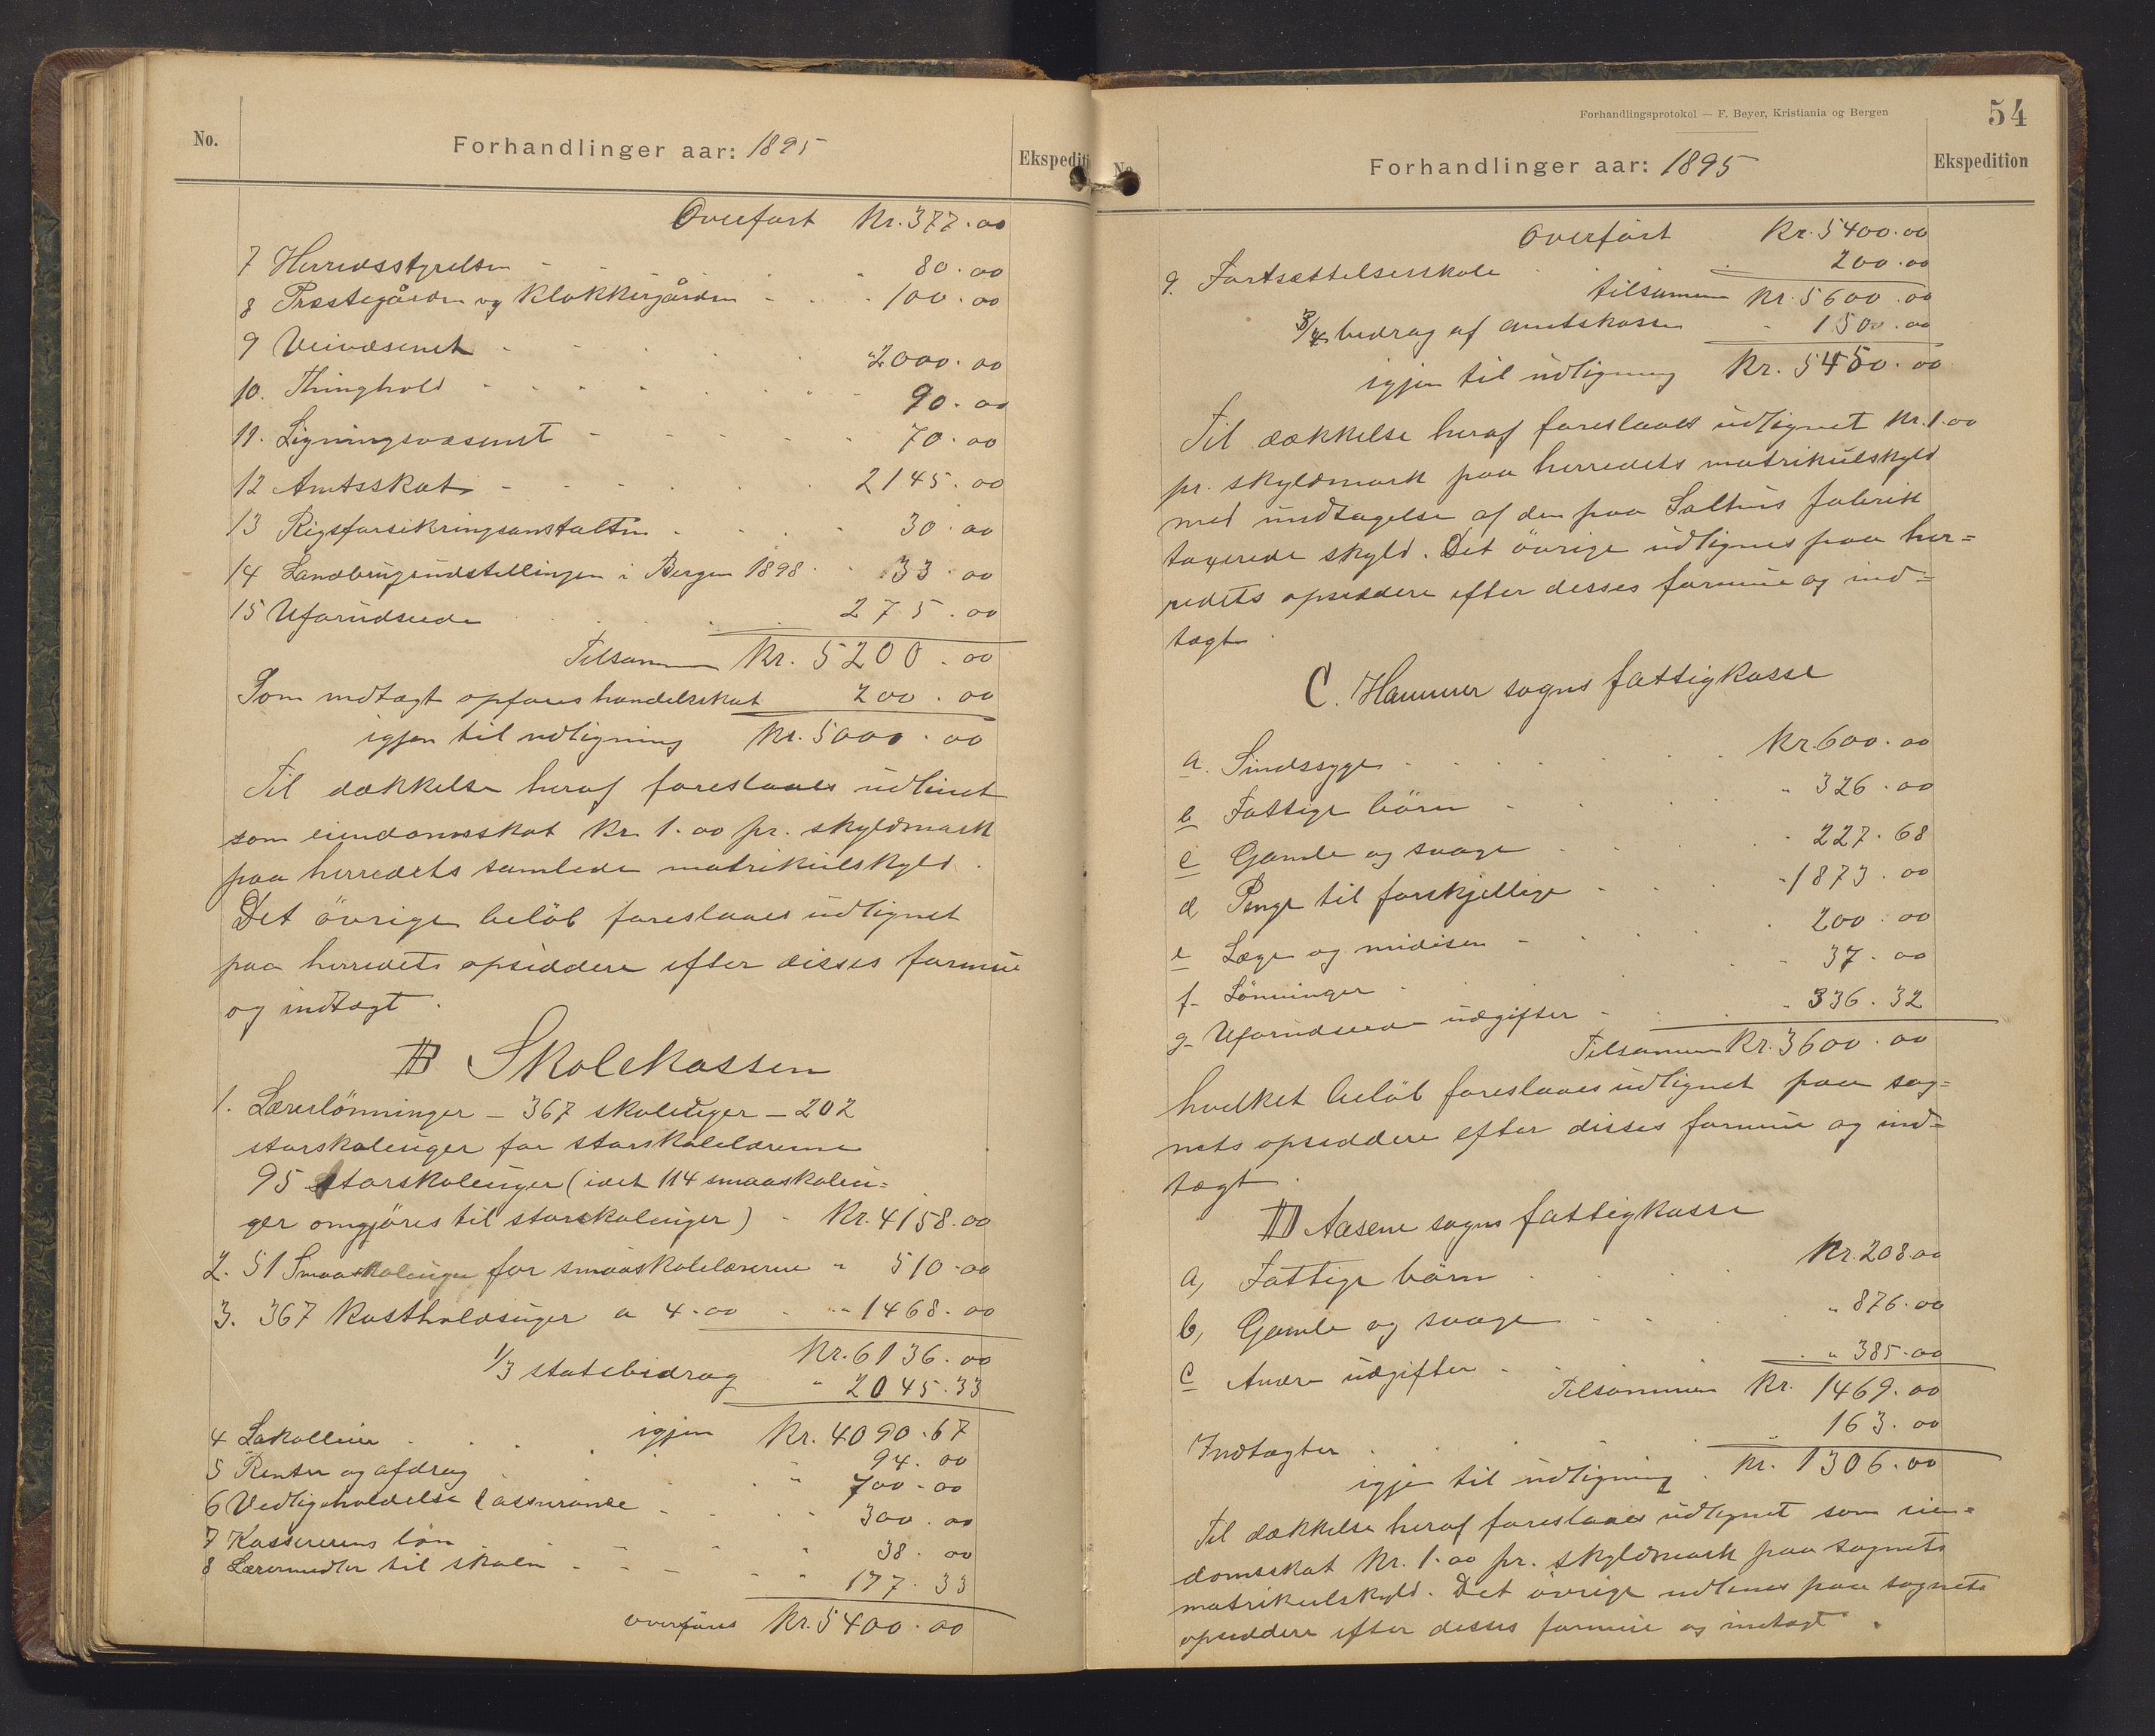 No.
Forhandlinger aar: 1895
Ekspediti
Overført Kr. 377.00
7 Herredsstyrelsen - - 80.00
8 Præstegården og klokkergården - - - 100.00
9 Veivæsenet - - - 2000.00
10. Thinghold - - - - 90.00
11. Ligningsvæsenet - - - - 70.00
12 Amtsskat - - - - 2145.00
13 Rigsforsikringsanstalten - - - 30.00
14 Landbrugsudstillingen i Bergen 1898 - 33.00
15 Uforudseede 275.00
Tilsammen Kr. 5200.00
Som indtægt opføres handelsskat 200.00
igjen til udligning Kr. 5000.00
Til dækkelse heraf foreslaaes udlinet
som eiendomsskat Kr. 1.00 pr. skyldmark
paa herredets samlede matrikulskyld.
Det övrige belöb foreslaaes udlignet
paa herredets opsiddere efter disses formue
og indtægt.
B Skolekassen
1. Lærerlönninger - 367 skoleuger - 202
storskoleuger for storskolelærerne
95 storskoleuger (idet 114 smaaskoleu=
ger omgjöres til storskoleuger) - Kr. 4158.00
2. 51 Smaaskoleuger for smaaskolelærerne " 510.00
3. 367 Kostholdsuger a 4.00 - " 1468.00
Kr. 6136.00
1/3 statsbidrag " 2045.33
igjen Kr. 4090.67
4 Lokalleie 94.00
5 Renter og afdrag " 700.00
6 Vedligeholdelse & assurance - 300.00
7 Kassererens løn - 38.00
8 Læremidler til skolen - - - " 177.33
overføres Kr. 5400.00
Forhandlingsprotokol — F. Beyer, Kristiania og Bergen
54
No.
Forhandlinger aar: 1895
Ekspedition
Overført Kr. 5400.00
9. Fortsættelsesskole 200.00
tilsammen Kr. 5600.00
3/4 bidrag af amtskassen - 150.00
igjen til udligning Kr. 5450.00
Til dækkelse heraf foreslaaes udlignet Kr. 1.00
pr. skyldmark paa herredets matrikulskyld
med undtagelse af den paa Salhus fabrik
taxerede skyld. Det övrige udlignes paa her=
redets opsiddere efter desses formue og ind=
tægt.
C. Hammer sogns fattigkasse
a. Sindssyge Kr. 600.00
b Fattige börn " 326.00
c Gamle og svage " 227.68
d, Penge til forskjellige - 1873.00
e Læge og medisin - 200.00
f. Lönninger - 37.00
g. Uforudseede udgifter - 336.32
Tilsammen Kr. 3600.00
hvilket belöb foreslaaes udlignet paa sog=
nets opsiddere efter disses formue og ind=
tægt.
D Aasene sogns fattigkasse
a, Fattige börn Kr. 208.00
b, Gamle og svage " 876.00
c Andre udgifter - " 385.00
Tilsammen Kr. 1469.00
Indtægter 163.00
igjen til udligning Kr. 1306.00
Til dækkelse heraf foreslaaes udlignet som eien=
domsskat Kr. 1.00 pr. skyldmark paa sognets
matrikulskyld. Det övrige udlines paa sognets
opsiddere efter desses formue og indtægt.